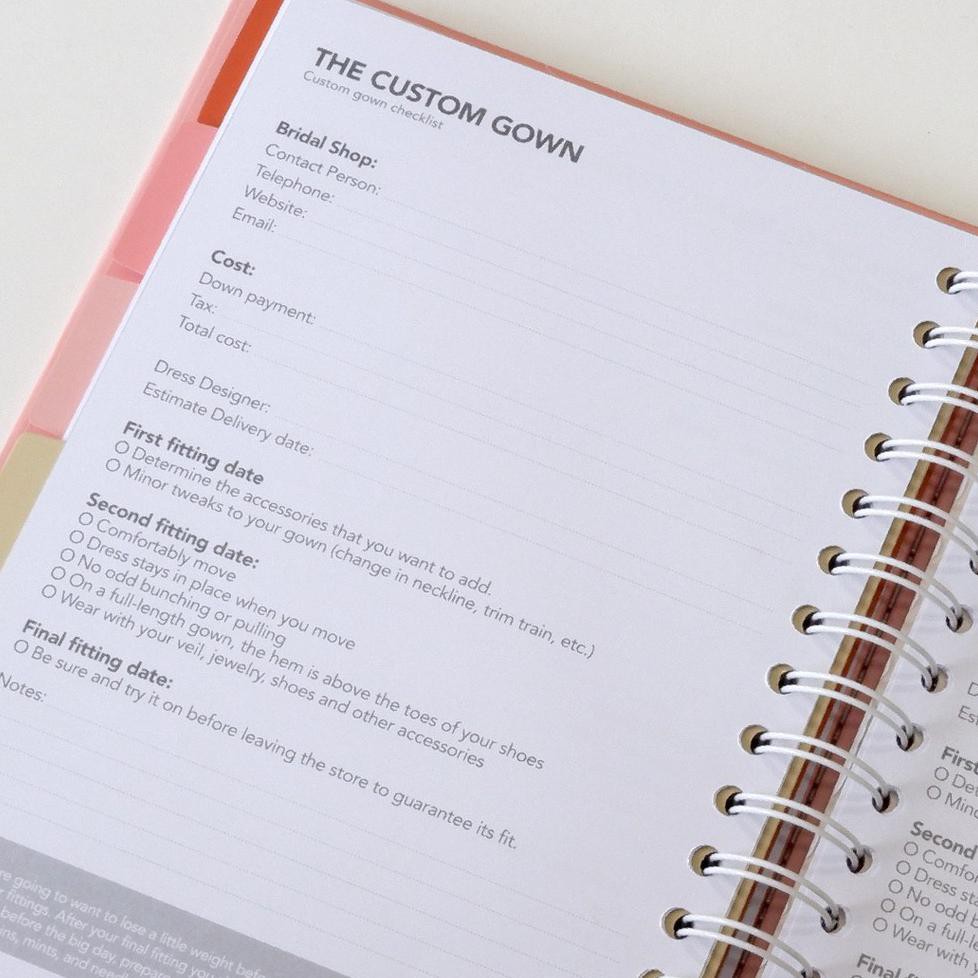 THE CUSTOM GOWN
Custom gown checklist
Bridal Shop:
Contact Person:
Telephone:
Website:
Email:
Cost:
Down payment:
Tax:
Total cost:
Dress Designer:
Estimate Delivery date:
First fitting date
O Determine the accessories that you want to add.
O Minor tweaks to your gown (change in neckline, trim train, etc.)
Second fitting date:
O Comfortably move
O Dress stays in place when you move
O No odd bunching or pulling
O On a full-length gown, the hem is above the toes of your shoes
O Wear with your veil, jewelry, shoes and other accessories
Final fitting date:
O Be sure and try it on before leaving the store to guarantee its fit.
Notes:
going to want to lose a little weight
fittings. After your final fitting you
before the big day, prepare
mints, and
First
O
O
Second
O
O Dress
O No odd
O On a
O Wear with
Final